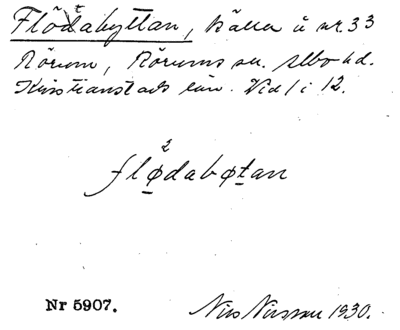 Flödabyttan, källa å nr 33
Rörum, Rörums sn. Albo hd.
Kristianstads län. Vid 1 i 12.
flø̠²dabøt̠an
Nr 5907.
Nils Nilsson 1930.